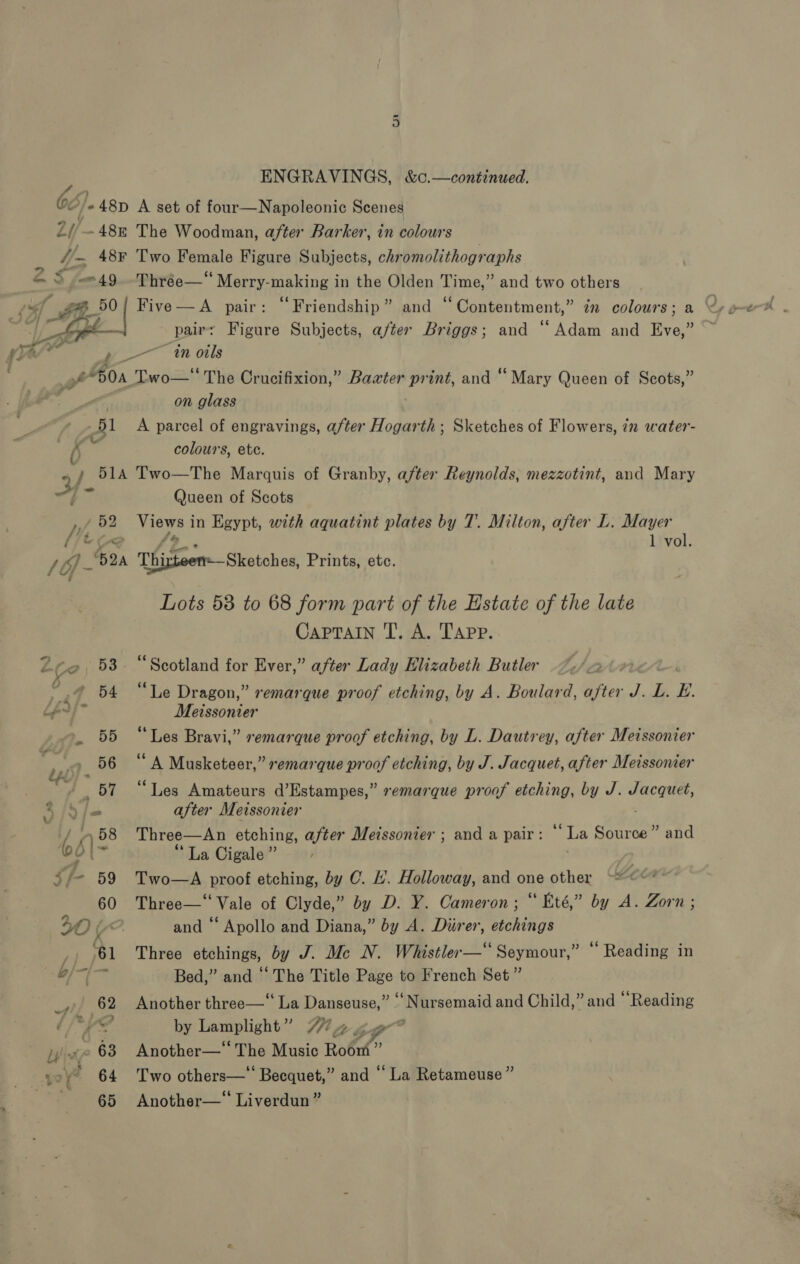 5
ENGRAVINGS, &c.—continued.
48D A set of four—Napoleonic Scenes
48E The Woodman, after Barker, in colours
48F Two Female Figure Subjects, chromolithographs
49 Three—“Merry-making in the Olden Time,” and two others
50 Five—A pair: “Friendship” and “Contentment,” in colours; a
pair: Figure Subjects, after Briggs; and “Adam and Eve,”
in oils
50A Two—“The Crucifixion,” Baxter print, and “Mary Queen of Scots,”
on glass
51 A parcel of engravings, after Hogarth; Sketches of Flowers, in water-
colours, etc.
51A Two—The Marquis of Granby, after Reynolds, mezzotint, and Mary
Queen of Scots
52 Views in Egypt, with aquatint plates by T. Milton, after L. Mayer
1 vol.
52A Thirteen—Sketches, Prints, etc.
Lots 53 to 68 form part of the Estate of the late
CAPTAIN T. A. TAPP.
53 “Scotland for Ever,” after Lady Elizabeth Butler
54 “Le Dragon,” remarque proof etching, by A. Boulard, after J. L. E.
Meissonier
55 “Les Bravi,” remarque proof etching, by L. Dautrey, after Meissonier
56 “A Musketeer,” remarque proof etching, by J. Jacquet, after Meissonier
57 “Les Amateurs d’Estampes,” remarque proof etching, by J. Jacquet,
after Meissonier
58 Three—An etching, after Meissonier; and a pair: “La Source” and
“La Cigale”
59 Two—A proof etching, by C. E. Holloway, and one other
60 Three—“Vale of Clyde,” by D. Y. Cameron; “Été,” by A. Zorn;
and “Apollo and Diana,” by A. Dürer, etchings
61 Three etchings, by J. Mc N. Whistler—“Seymour,” “Reading in
Bed,” and “The Title Page to French Set”
62 Another three—“La Danseuse,” “Nursemaid and Child,” and “Reading
by Lamplight”
63 Another—“The Music Room”
64 Two others—“Becquet,” and “La Retameuse”
65 Another—“Liverdun”